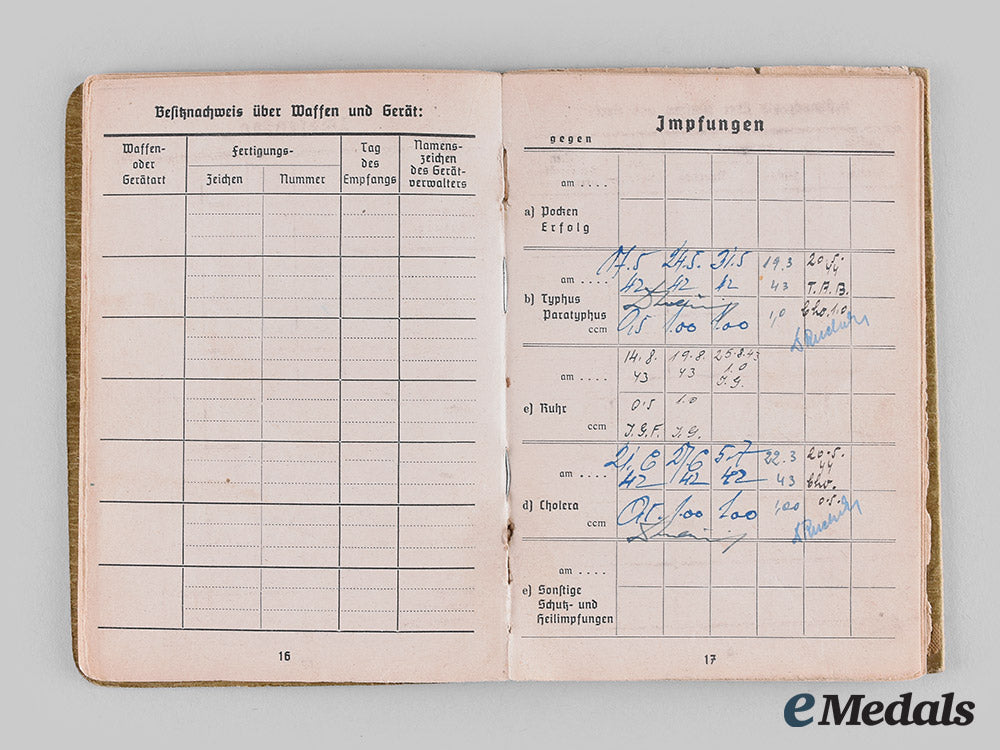 Besitznachweis über Waffen und Gerät:
Waffen-
oder
Gerätart
Fertigungs-
Zeichen
Nummer
Tag
des
Empfangs
Namens-
zeichen
des Gerät-
verwalters
16
Impfungen
gegen
am ....
a) Pocken
Erfolg
17.5 24.5. 31.5 19.3 20.5.
44
am .... 42 42 42 43 T.A.B.
b) Typhus
Paratyphus
ccm 0,5 1,00 1,00 1,0 Cho. 1,0
14.8. 19.8. 25.8.43
am .... 43 43 1.0
J.G.
c) Ruhr 0.5 1.0
ccm J.G.F. J.G.
21.6 27.6 5.7 22.3 20.5.
44
am .... 42 42 42 43 Cho.
d) Cholera
ccm 0,5 1,00 1,00 1,00 0.5.
am ....
e) Sonstige
Schutz- und
Heilimpfungen
17
eMedals